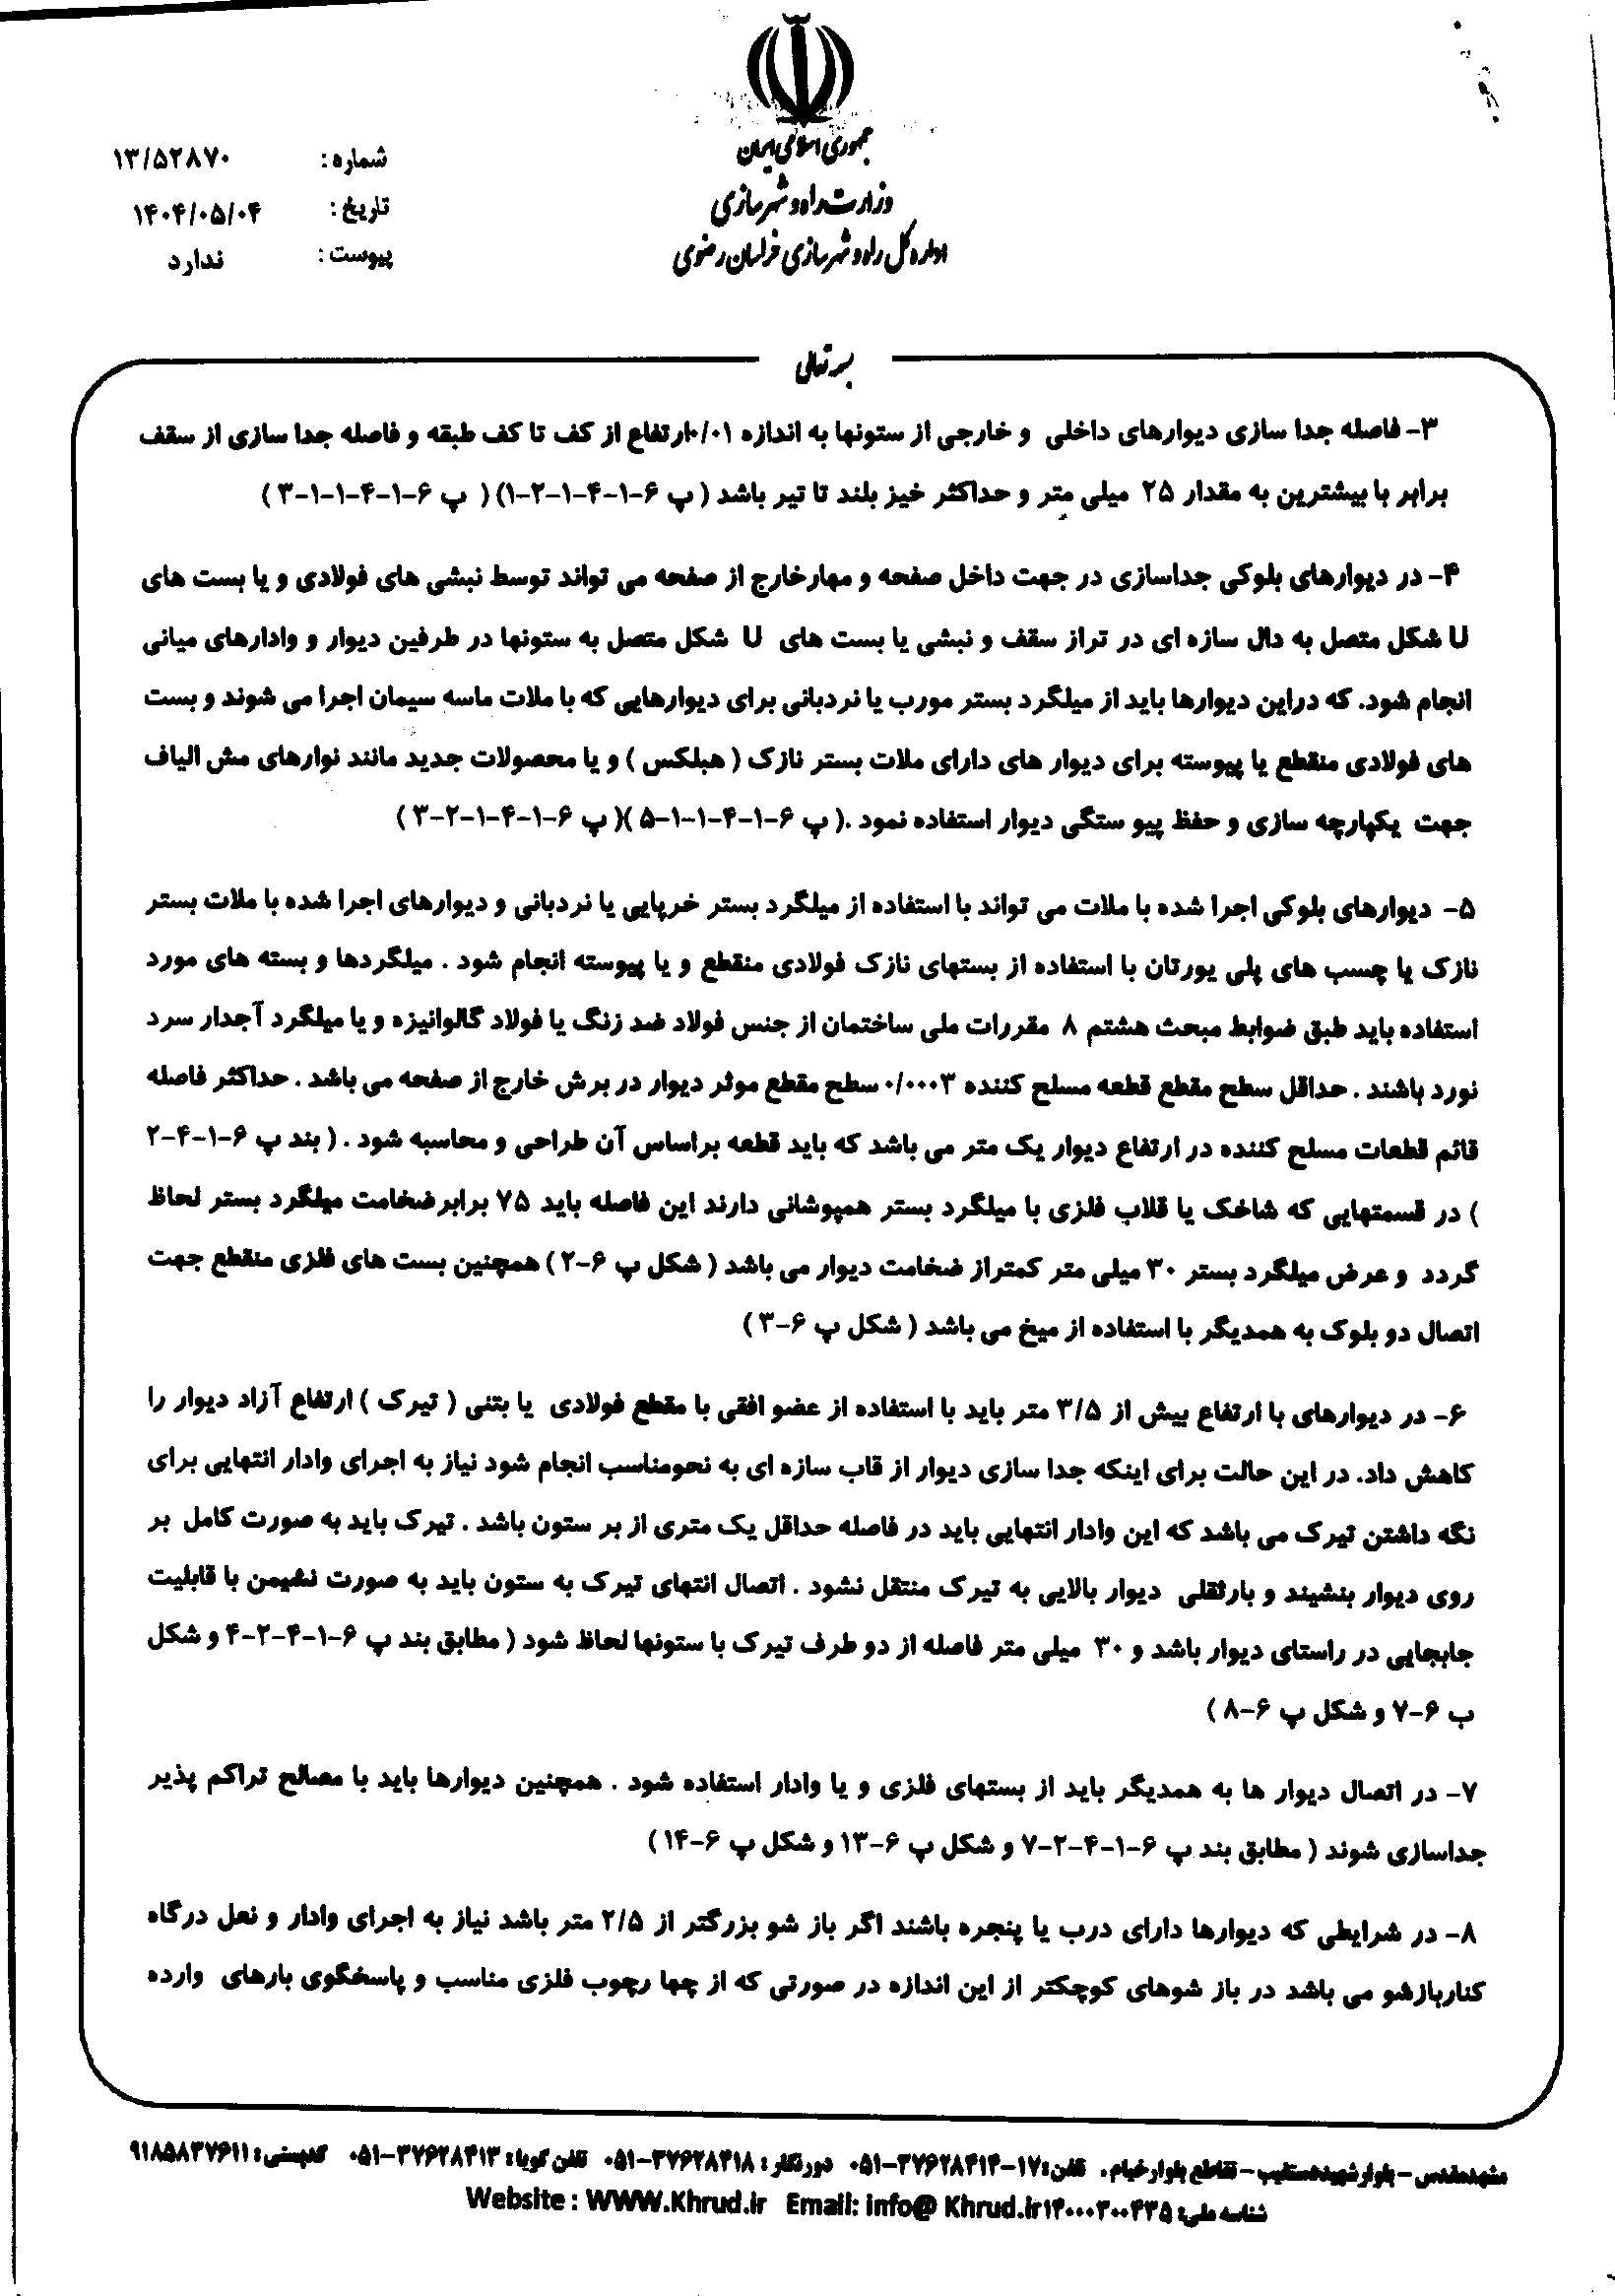 جمهوری اسلامی ایران
وزارت راه و شهرسازی
اداره کل راه و شهرسازی خراسان رضوی
شماره: ۱۳/۵۲۸۷۰
تاریخ: ۱۴۰۴/۰۵/۰۴
پیوست: ندارد
بسمه تعالی
۳- فاصله جدا سازی دیوارهای داخلی و خارجی از ستونها به اندازه ۰/۰۱ارتفاع از کف تا کف طبقه و فاصله جدا سازی از سقف
برابر با بیشترین به مقدار ۲۵ میلی متر و حداکثر خیز بلند تا تیر باشد ( پ ۶-۱-۴-۱-۲-۱) ( پ ۶-۱-۴-۱-۱-۳ )
۴- در دیوارهای بلوکی جداسازی در جهت داخل صفحه و مهارخارج از صفحه می تواند توسط نبشی های فولادی و یا بست های
U شکل متصل به دال سازه ای در تراز سقف و نبشی یا بست های U شکل متصل به ستونها در طرفین دیوار و وادارهای میانی
انجام شود. که دراین دیوارها باید از میلگرد بستر مورب یا نردبانی برای دیوارهایی که با ملات ماسه سیمان اجرا می شوند و بست
های فولادی منقطع یا پیوسته برای دیوار های دارای ملات بستر نازک ( هبلکس ) و یا محصولات جدید مانند نوارهای مش الیاف
جهت یکپارچه سازی و حفظ پیو ستگی دیوار استفاده نمود .( پ ۶-۱-۴-۱-۱-۵ )( پ ۶-۱-۴-۱-۲-۳ )
۵- دیوارهای بلوکی اجرا شده با ملات می تواند با استفاده از میلگرد بستر خرپایی یا نردبانی و دیوارهای اجرا شده با ملات بستر
نازک یا چسب های پلی یورتان با استفاده از بستهای نازک فولادی منقطع و یا پیوسته انجام شود . میلگردها و بسته های مورد
استفاده باید طبق ضوابط مبحث هشتم ۸ مقررات ملی ساختمان از جنس فولاد ضد زنگ یا فولاد گالوانیزه و یا میلگرد آجدار سرد
نورد باشند . حداقل سطح مقطع قطعه مسلح کننده ۰/۰۰۰۳ سطح مقطع موثر دیوار در برش خارج از صفحه می باشد . حداکثر فاصله
قائم قطعات مسلح کننده در ارتفاع دیوار یک متر می باشد که باید قطعه براساس آن طراحی و محاسبه شود . ( بند پ ۶-۱-۴-۲
) در قسمتهایی که شاخک یا قلاب فلزی با میلگرد بستر همپوشانی دارند این فاصله باید ۷۵ برابرضخامت میلگرد بستر لحاظ
گردد و عرض میلگرد بستر ۳۰ میلی متر کمتراز ضخامت دیوار می باشد ( شکل پ ۶-۲ ) همچنین بست های فلزی منقطع جهت
اتصال دو بلوک به همدیگر با استفاده از میخ می باشد ( شکل پ ۶-۳ )
۶- در دیوارهای با ارتفاع بیش از ۳/۵ متر باید با استفاده از عضو افقی با مقطع فولادی یا بتنی ( تیرک ) ارتفاع آزاد دیوار را
کاهش داد. در این حالت برای اینکه جدا سازی دیوار از قاب سازه ای به نحومناسب انجام شود نیاز به اجرای وادار انتهایی برای
نگه داشتن تیرک می باشد که این وادار انتهایی باید در فاصله حداقل یک متری از بر ستون باشد . تیرک باید به صورت کامل بر
روی دیوار بنشیند و بارثقلی دیوار بالایی به تیرک منتقل نشود . اتصال انتهای تیرک به ستون باید به صورت نشیمن با قابلیت
جابجایی در راستای دیوار باشد و ۳۰ میلی متر فاصله از دو طرف تیرک با ستونها لحاظ شود ( مطابق بند پ ۶-۱-۴-۲-۴ و شکل
ب ۶-۷ و شکل پ ۶-۸ )
۷- در اتصال دیوار ها به همدیگر باید از بستهای فلزی و یا وادار استفاده شود . همچنین دیوارها باید با مصالح تراکم پذیر
جداسازی شوند ( مطابق بند پ ۶-۱-۴-۲-۷ و شکل پ ۶-۱۳ و شکل پ ۶-۱۴ )
۸- در شرایطی که دیوارها دارای درب یا پنجره باشند اگر باز شو بزرگتر از ۲/۵ متر باشد نیاز به اجرای وادار و نعل درگاه
کناربازشو می باشد در باز شوهای کوچکتر از این اندازه در صورتی که از چها رچوب فلزی مناسب و پاسخگوی بارهای وارده
مشهدمقدس - بلوار شهیددستغیب - تقاطع بلوار خیام. تلفن: ۱۷-۳۷۶۲۸۴۱۴-۰۵۱ دورنگار : ۳۷۶۲۸۴۱۸-۰۵۱ تلفن گویا: ۳۷۶۲۸۴۱۳-۰۵۱ کدپستی: ۹۱۸۵۸۳۷۶۱۱
شناسه ملی: ۱۴۰۰۰۳۰۰۴۳۵ Website : WWW.Khrud.ir Email: info@ Khrud.ir